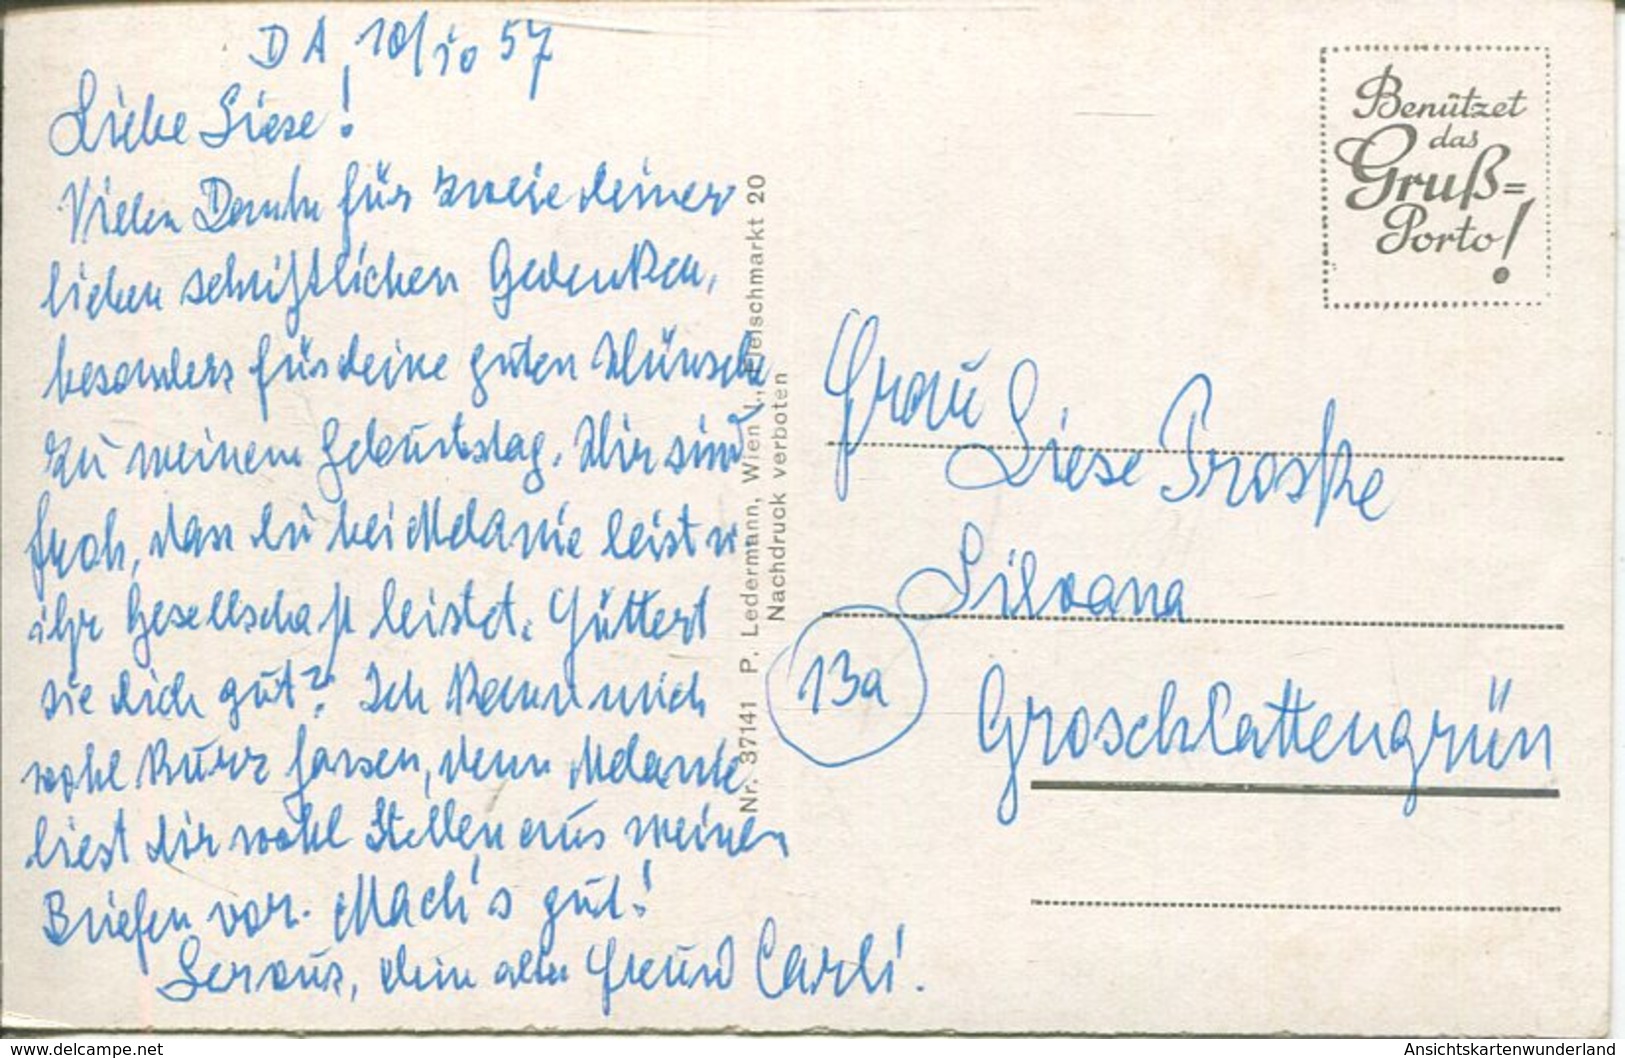 DA 10/10 57
Liebe Liese!
Vielen Dank für zweie deiner
lieben schriftlichen Gedenken,
besonders für deine guten Wünsche
zu meinem Geburtstag. Wir sind
froh, dass du bei Melanie
ihr Gesellschaft leistet. Füttert
sie dich gut? Ich kann mich
wohl kurz fassen, denn Melanie
liest dir wohl Stellen aus meinen
Briefen vor. Mach's gut!
Servus, dein alter Freund Carli.
Nr. 37141 P. Ledermann, Wien I., Fleischmarkt 20
Nachdruck verboten
Benützet
das
Gruß=
Porto!
Frau
Liese Proske
Silvana
13a
Groschlattengrün
ansichtskartenwunderland / delcampe.net
Ansichtskartenwunderland